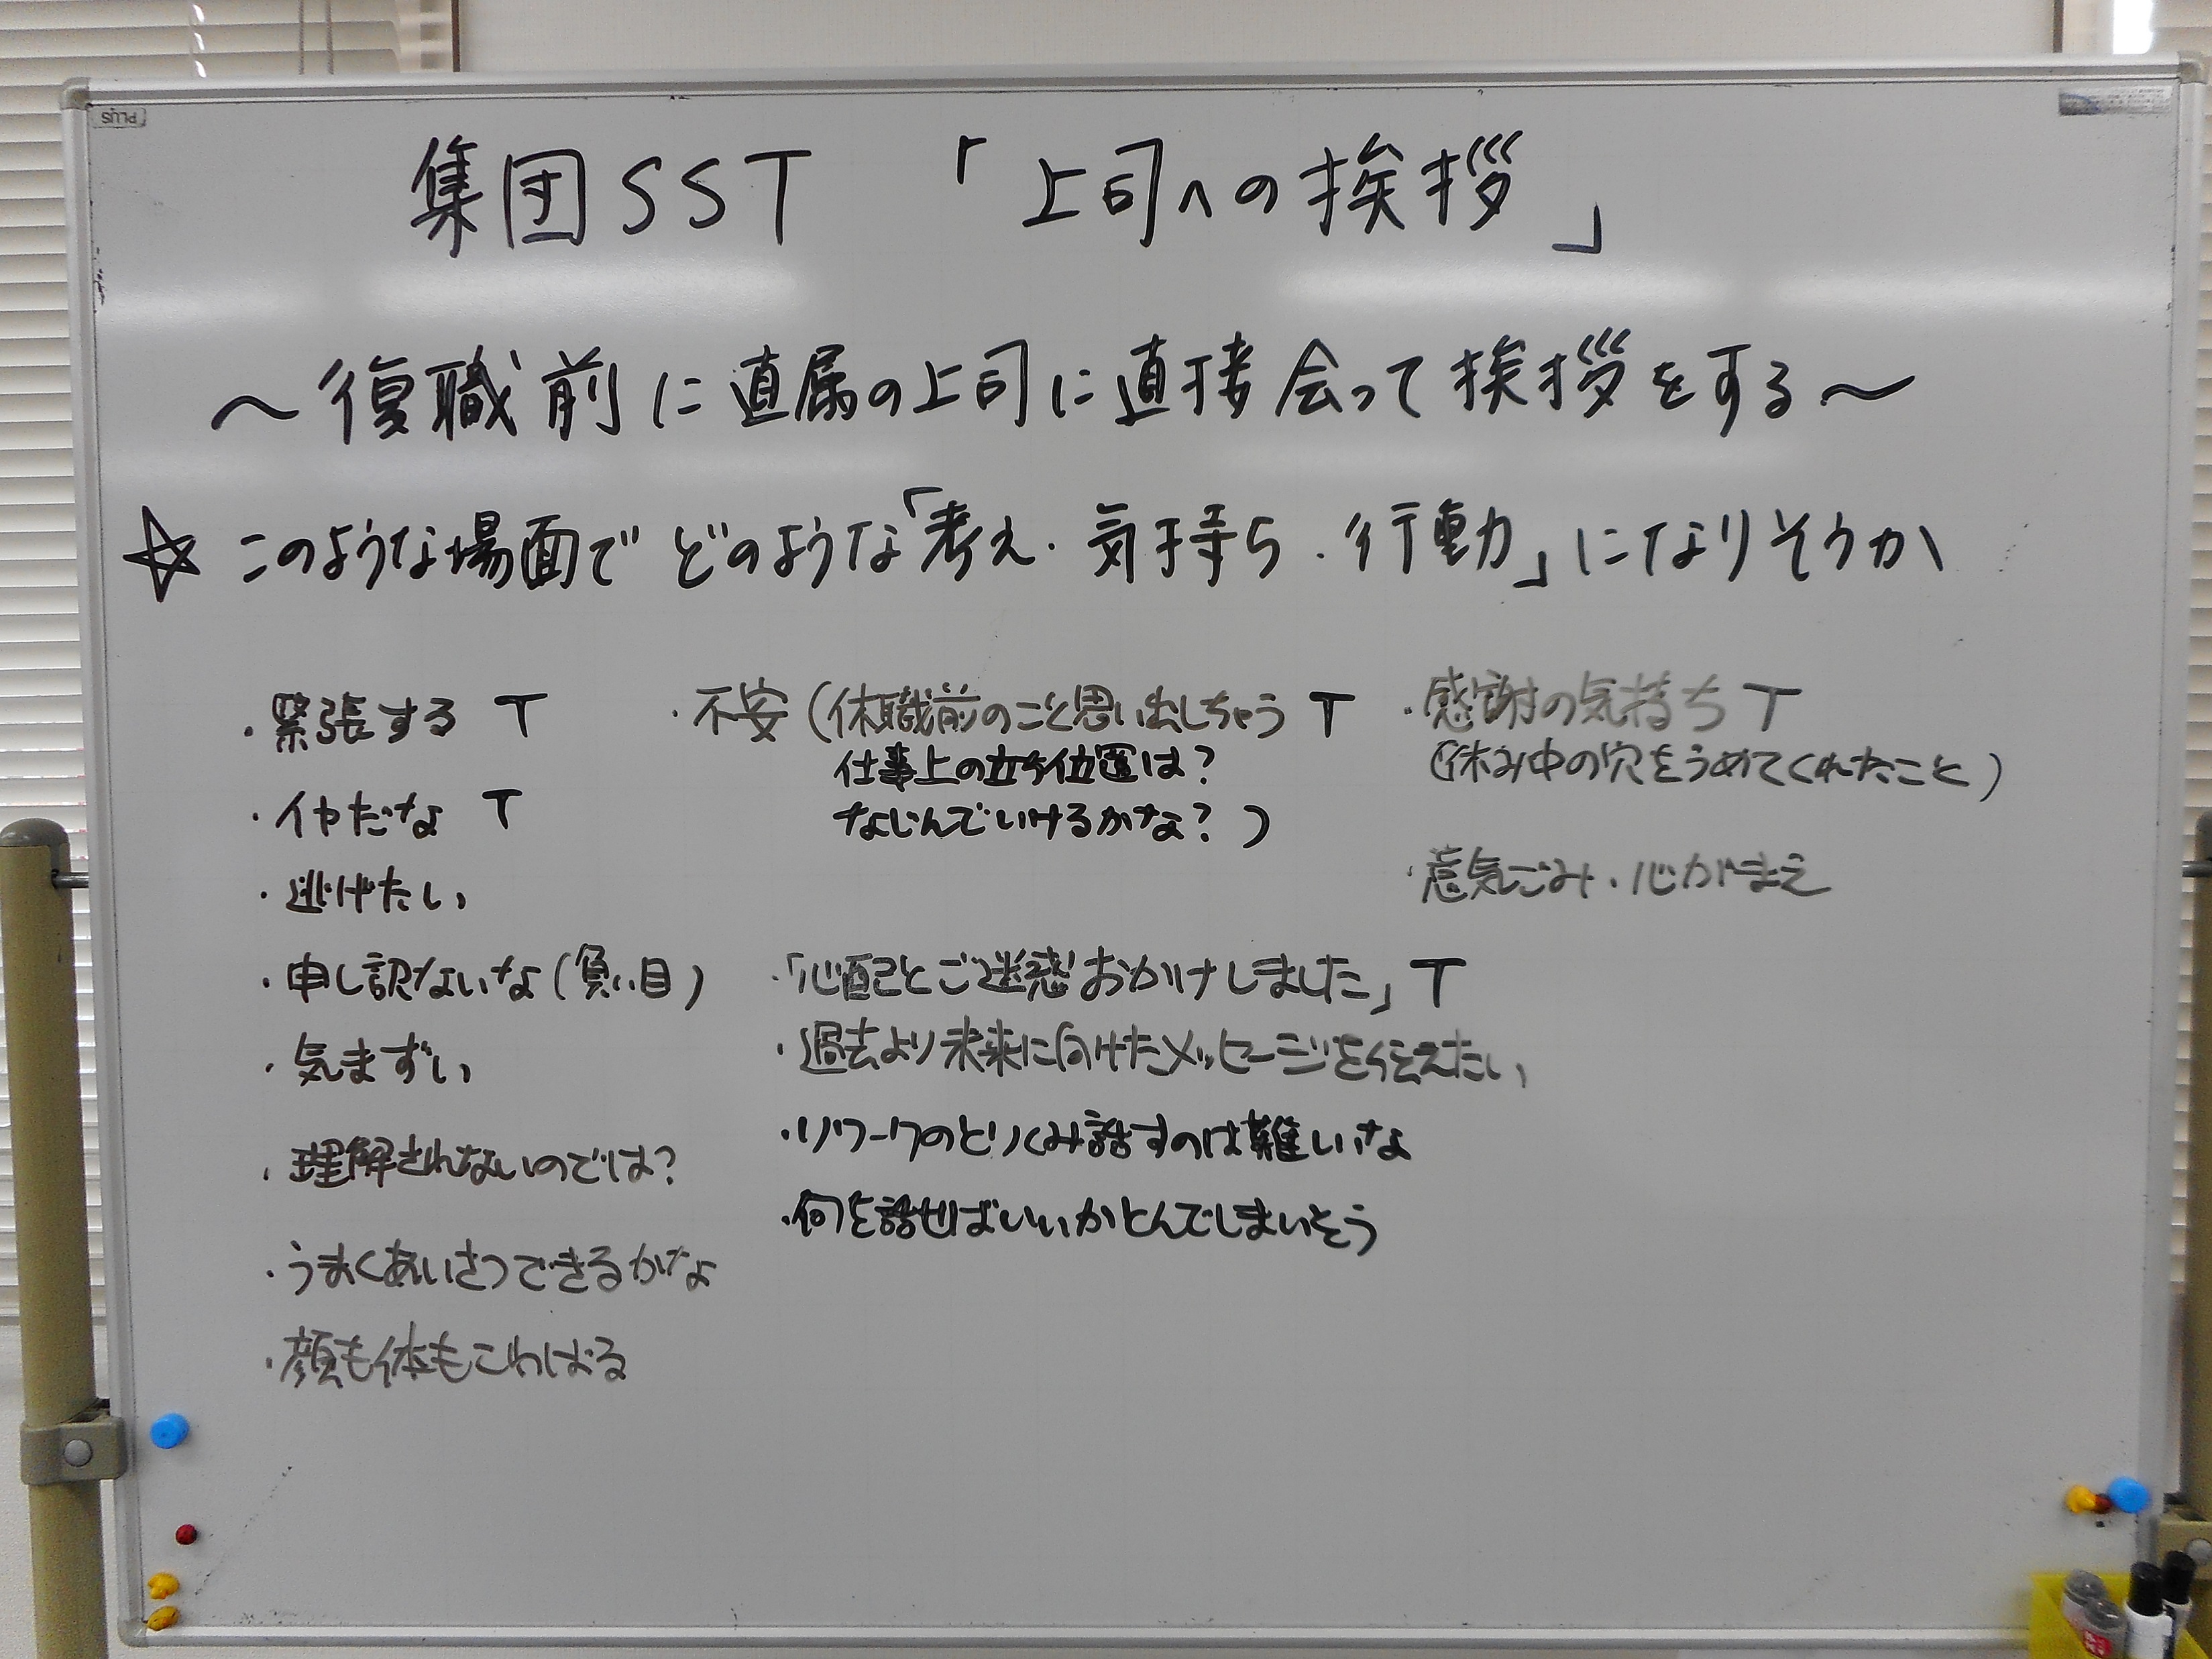 PLUS
集団SST 「上司への挨拶」
～復職前に直属の上司に直接会って挨拶をする～
☆このような場面でどのような「考え・気持ち・行動」になりそうか
・緊張する T
・イヤだな T
・逃げたい
・申し訳ないな(負い目)
・気まずい
・理解されないのでは?
・うまくあいさつできるかなょ
・顔も体もこわばる
・不安(休職前のこと思い出しちゃう T
仕事上の立ち位置は?
なじんでいけるかな?)
・「心配とご迷惑おかけしました」T
・過去より未来に向けたメッセージを伝えたい
・リワークのとりくみ話すのは難しいな
・何を話せばいいかとんでしまいそう
・感謝の気持ち T
(休み中の穴をうめてくれたこと)
・意気ごみ・心がまえ